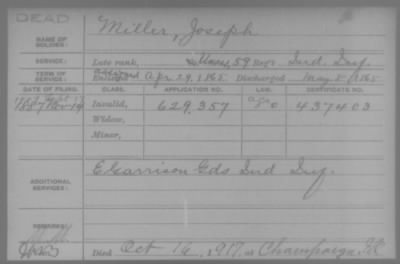 DEAD
NAME OF SOLDIER: Miller, Joseph
SERVICE: Late rank, 59 Reg't Ind. Inf.
TERM OF SERVICE: Enlisted Apr 29, 1865 Discharged May 8, 1865
DATE OF FILING. CLASS. APPLICATION NO. LAW. CERTIFICATE NO.
Invalid, 629,357 437403
Widow,
Minor,
ADDITIONAL SERVICES: E Garrison Gds Ind Inf.
REMARKS:
Died Oct 16, 1917, at Champaign, Ill